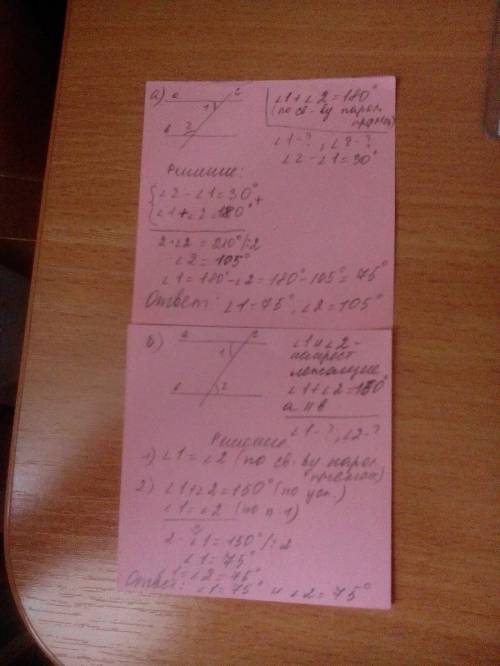 а) a c ∠1+∠2=180°
1 (по св-ву парал.
прямых)
в 2 ∠1-?, ∠2-?
∠2-∠1=30°
Решение:
∠2-∠1=30°
∠1+∠2=180° +
2·∠2=210°/:2
∠2=105°
∠1=180°-∠2=180°-105°=75°
Ответ: ∠1=75°, ∠2=105°
б) a c ∠1 и ∠2-
1 накрест
лежащие
в 2 ∠1+∠2=150°
a || в
∠1-?, ∠2-?
Решение
1) ∠1=∠2 (по св-ву парал.
прямых)
2) ∠1+∠2=150° (по усл.)
∠1=∠2 (по п.1)
2·∠1=150°/:2
∠1=75°
∠1=∠2=75°
Ответ: ∠1=75° и ∠2=75°